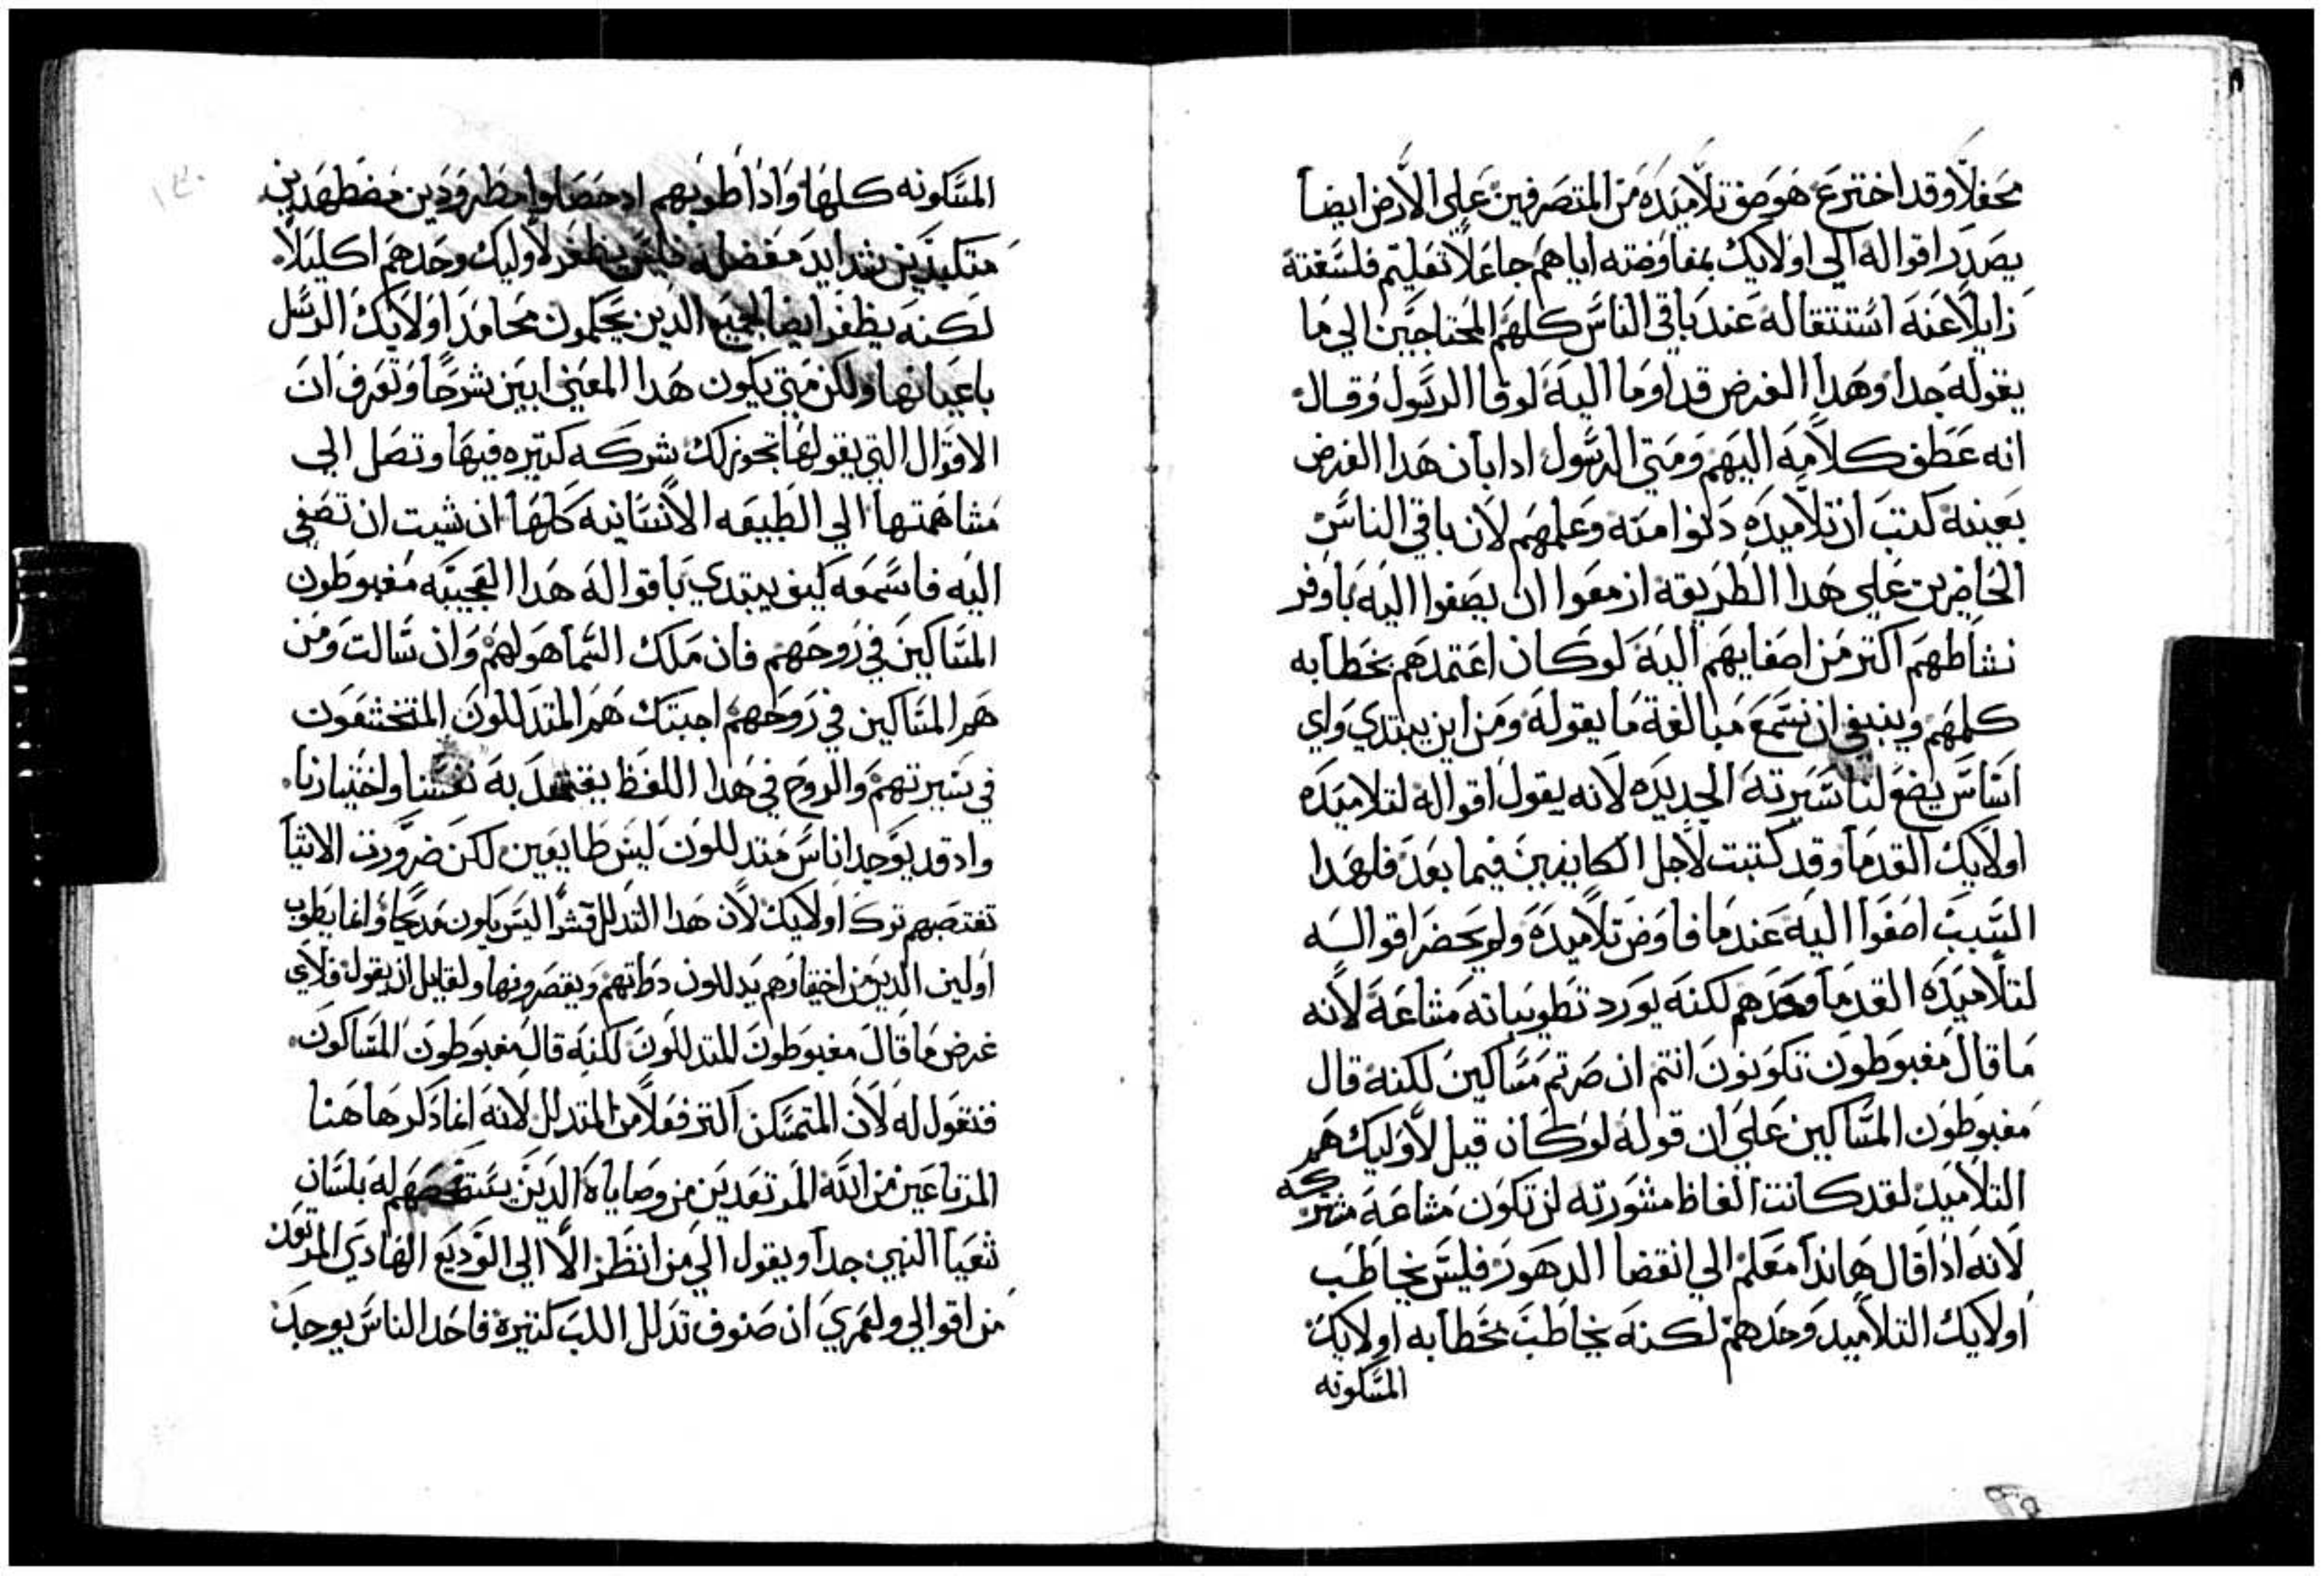 محفلاً وقد اخترع هو صف تلاميده من المتصرفين علي الارض ايضاً
يصدر اقواله الي اولايك بمفاوضته اياهم جاعلاً تعليم فلسفته
زايلاً عنه استتقاله عند باقي الناس كلهم المحتاجين الي ما
يقوله جداً وهدا الغرض قد اوما اليه لوقا الرسول وقال
انه عطف كلامه اليهم ومتي الرسول ادا بان هدا الغرض
بعينه كتب ان تلاميده دنوا منه وعلمهم لان باقي الناس
الحاضرين علي هدا الطريقه ازمعوا ان يصغوا اليه باوفر
نشاطهم اكتر من اصغايهم اليه لو كان اعتمدهم بخطابه
كلهم وينبغي ان نسمع مبالغة ما يقوله ومن اين يبتدي واي
اساس يضع لنا سيرته الجديده لانه يقول اقواله لتلاميده
اولايك القدما وقد كتبت لاجل الكاينين فيما بعد فلهدا
السبب اصغوا اليه عندما فاوض تلاميده ولم يحضر اقواله
لتلاميده القدما وحدهم لكنه يورد تطويباته مشاعة لانه
ما قال مغبوطون تكونون انتم ان صرتم مساكين لكنه قال
مغبوطون المساكين علي ان قوله لو كان قيل لاوليك هم
التلاميد لقد كانت الفاظ مشورته لن تكون مشاعة مشتركه
لانه ادا قال هاندا معكم الي انقضا الدهور فليس يخاطب
اولايك التلاميد وحدهم لكنه يخاطب بخطابه اولايك
المسكونه
المسكونه كلها وادا طوبهم اد حصلوا مطرودين مضطهدين
متكبدين شدايد معضله فليس يظفر لاوليك وحدهم اكليلاً
لكنه يظفر ايضا لجميع الدين يحكمون محامد اولايك الرسل
باعيانها ولكن متي يكون هدا المعني ابين شرحاً وتعرف ان
الاقوال التي يقولها تحوز لك شركه كتيره فيها وتصل الي
مشاهمتها الي الطبيعه الانسانيه كلها ان شيت ان تصغي
اليه فاسمعه كيف يبتدي باقواله هدا العجيبه مغبوطون
المساكين في روحهم فان ملك السما هو لهم وان سالت ومن
هم المساكين في روحهم اجبتك هم المتدللون المتخشعون
في سيرتهم والروح في هدا اللفظ يعتمد به نفسنا واختيارنا
واد قد يوجد اناس متدللون ليس طايعين لكن ضرورت الاشيا
تغتصبهم ترك اولايك لان هدا التدلل قسراً ليس يكون مديحاً وانما يطوب
اولين الدين من اختيارهم يدللون دواتهم ويقصرونها ولقايل ان يقول فلاي
غرض ما قال مغبوطون المتدللون لكنه قال مغبوطون المساكون
فنقول له لان المتمسكن اكتر فعلاً من المتدلل لانه انما دكر هاهنا
المرتاعين من الله المرتعدين من وصاياه الدين له بلسان
شعيا النبي جداً ويقول الي من انظر الا الي الوديع الهادي المرتعد
من اقوالي ولعمري ان صنوف تدلل اللب كتيرة فاحد الناس يوجد